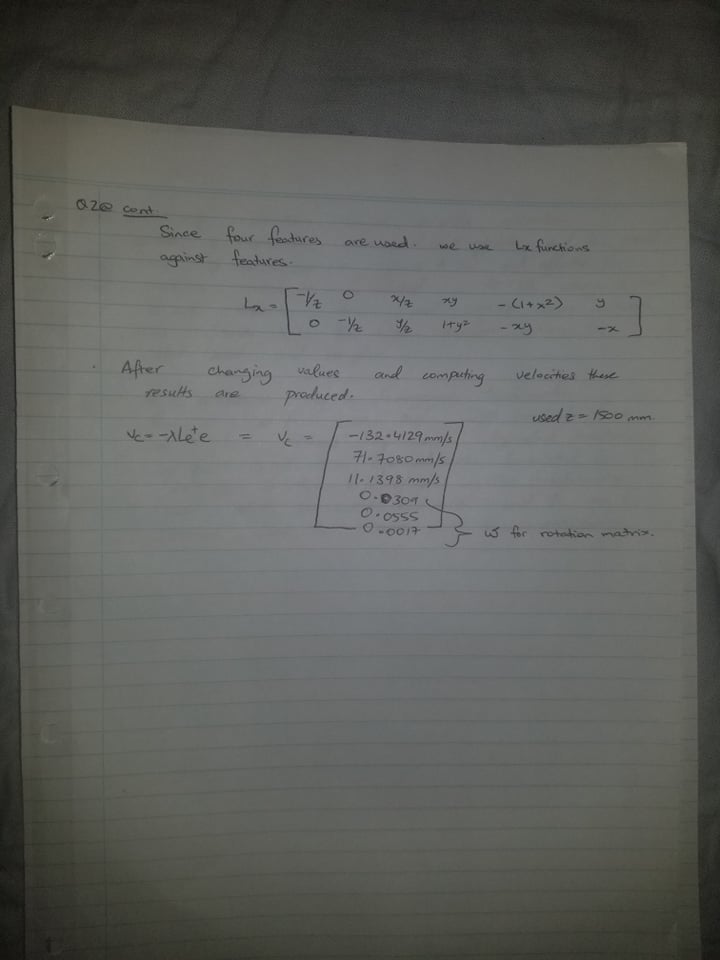 Q2@ cont.
Since four features are used. we use Lx functions
against features.
Lx = [ -1/z 0 x/z xy -(1+x²) y
0 -1/z y/z 1+y² -xy -x ]
After changing values and computing velocities these
results are produced.
used z = 1500 mm.
Vc = -λLe⁺e = Vc = [ -132.4129 mm/s
71.7080 mm/s
11.1398 mm/s
0.0309
0.0555
0.0017 ] } ω for rotation matrix.